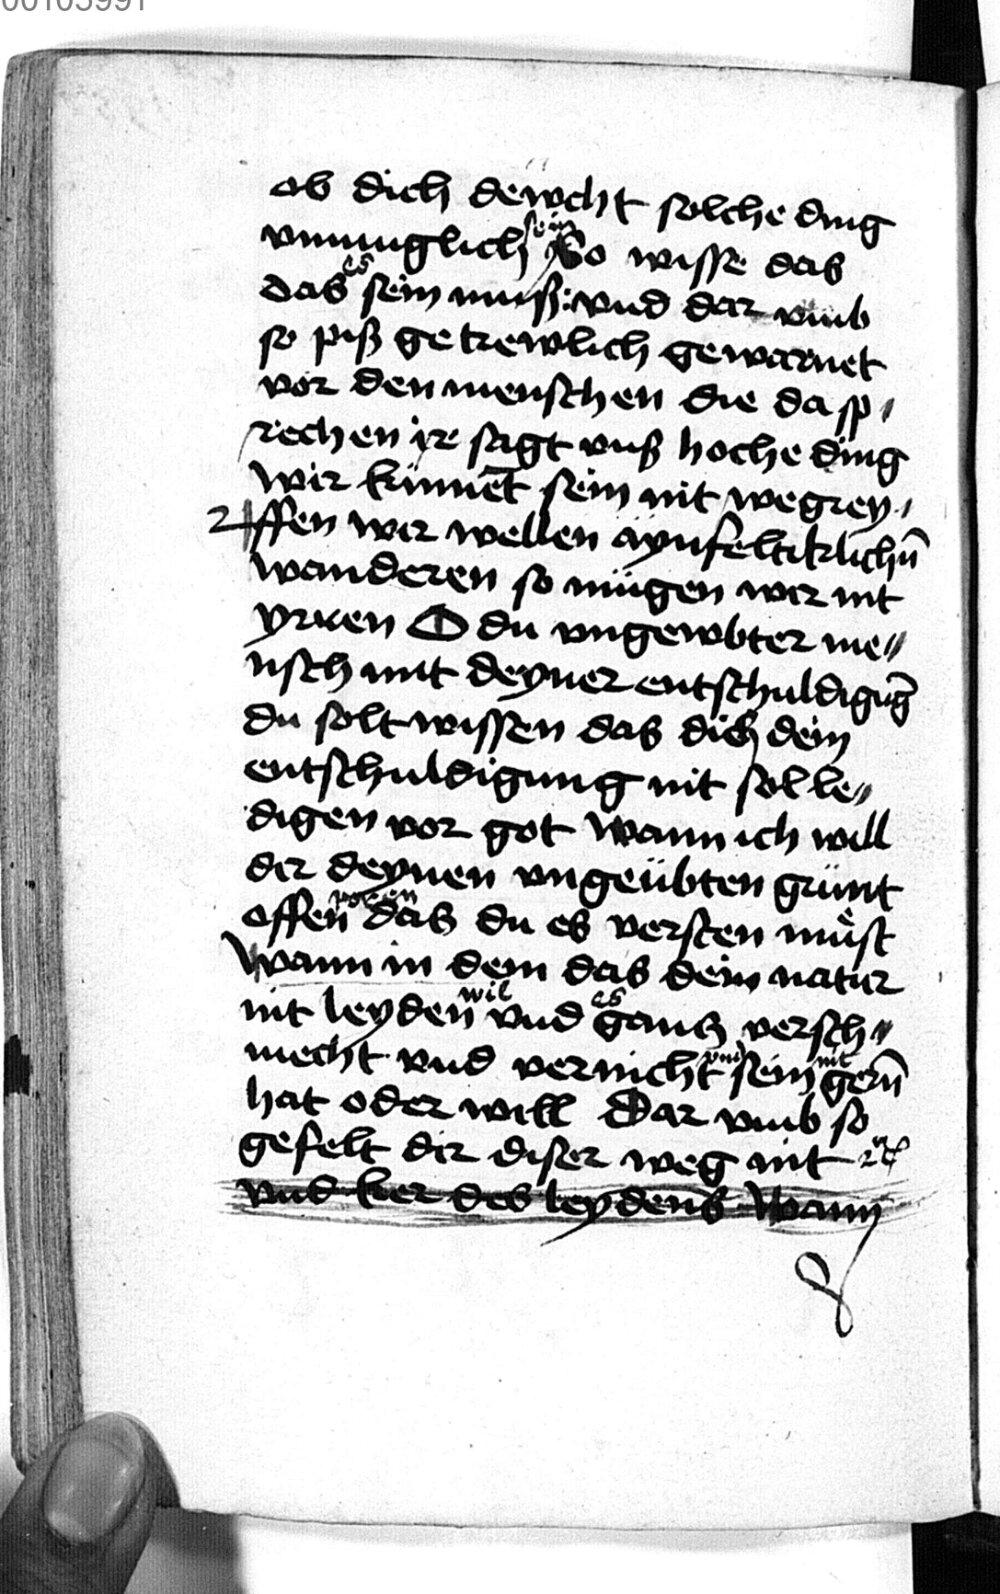 00103991
ob dich dewcht solche ding
vnmuglich sein So wisse das
das es sein muß: vnd dar vmb
so piß getrewlich gewarnet
vor den menschen die da sp„
rechen ir sagt vnß hoche ding
wir kunnet sein nit wegrey„
ffen wir wellen aynfeltiklichn̄
wanderen so mügen wir nit
yrren O du vngewbter me„
nsch mit deyner entschuldigūg
du solt wissen das dich dein
entschuldigung nit sol le„
digen vor got Wann ich will
dir deynen vngeübten grünt
offen das du es versten must
Wann in dem das dein natur
nit leyden wil vnd es gancz versch„
mecht vnd vernicht vnd sein nit gern̄
hat oder will Dar vmb so
gefelt dir diser weg nit
vnd ker des leydens Wann